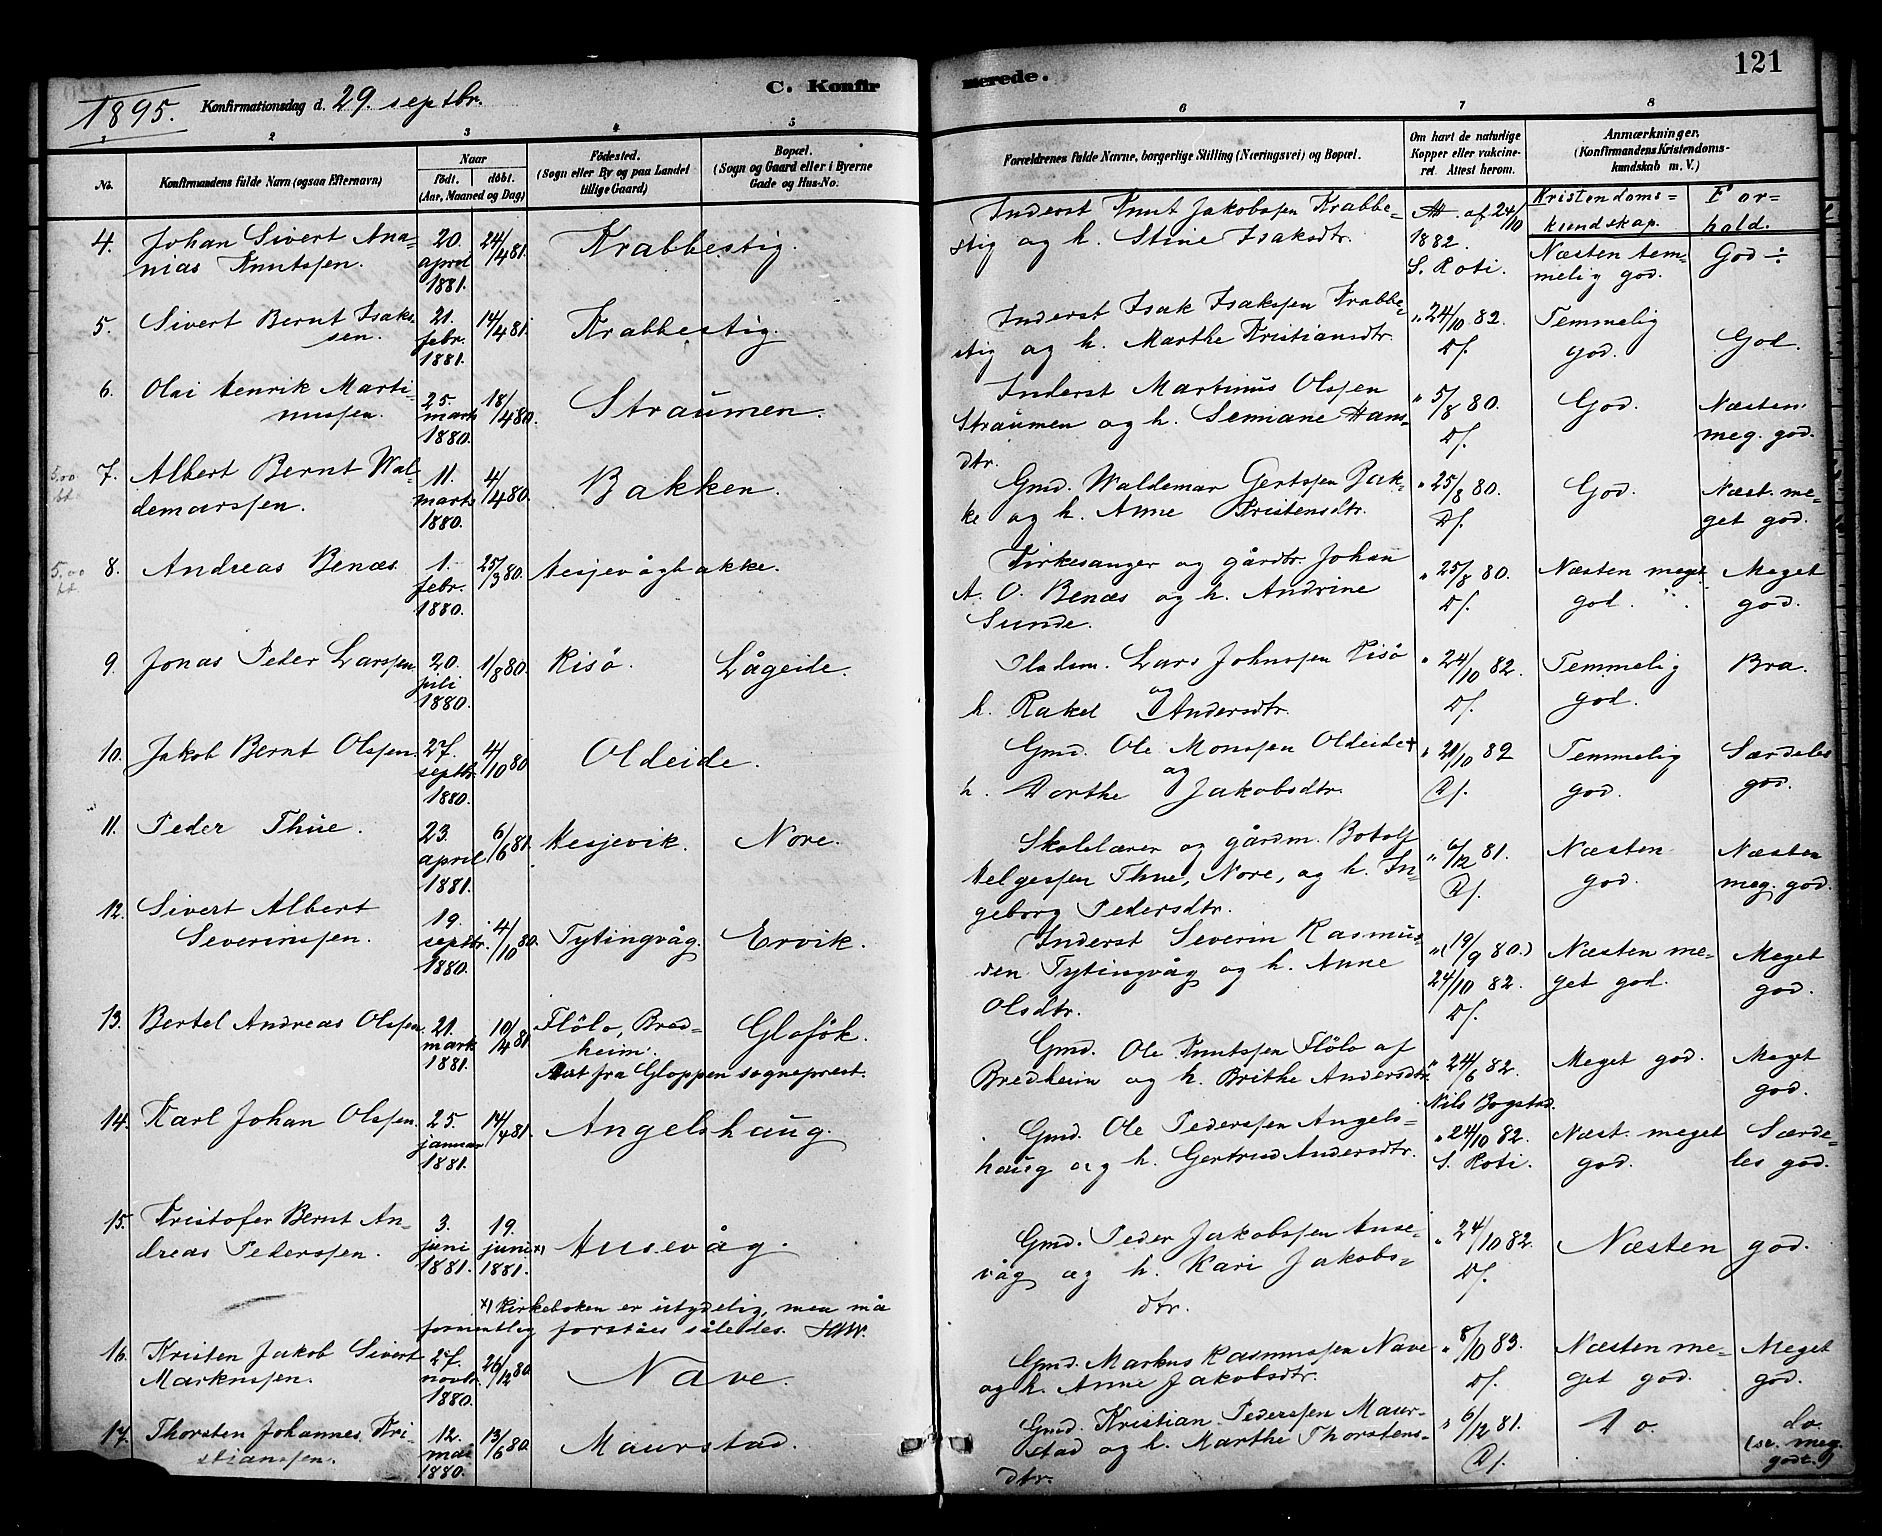 121
C. Konfirmerede.
1895. Konfirmationsdag d. 29. septbr.
1 2 3 4 5 6 7 8
No.
Konfirmandens fulde Navn (ogsaa Efternavn)
Naar
født. døbt.
(Aar, Maaned og Dag)
Fødested.
(Sogn eller By og paa Landet
tillige Gaard)
Bopæl.
(Sogn og Gaard eller i Byerne
Gade og Hus-No.
Forældrenes fulde Navne, borgerlige Stilling (Næringsvei) og Bopæl.
Om havt de naturlige
Kopper eller vakcine-
ret. Attest herom.
Anmærkninger,
(Konfirmandens Kristendoms-
kundskab m. V.)
Kristendoms-
kundskap.
For-
hold.
4. Johan Sivert Ana-
nias Knutssen.
20.
april
1881.
24/4 81.
Krabbestig.
Inderst Knut Jakobssen Krabbe-
stig og h. Stine Isaksdtr.
Att. af 24/10
1882.
S. Roti.
Næsten tem-
melig god.
God ÷
5. Sivert Bernt Isaks-
sen.
21.
febr.
1881.
14/4 81.
Krabbestig.
Inderst Isak Isakssen Krabbe-
stig og h. Marthe Kristiansdtr.
" 24/10 82.
Ds.
Temmelig
god.
God.
6. Olai Henrik Marti-
nussen.
25.
marts
1880.
18/4 80.
Straumen.
Inderst Martinus Olssen
Straumen og h. Semiane Hans-
dtr.
" 5/8 80.
Ds.
God.
Næsten
meg. god.
5,00
bt.
7. Albert Bernt Wal-
demarssen.
11.
marts
1880.
4/4 80.
Bakken.
Gmd. Waldemar Gertssen Bak-
ke og h. Anne Kristensdtr.
" 25/8 80.
Ds.
God.
Næst. me-
get god.
5,00
bt.
8. Andreas Benæs
1.
febr.
1880.
25/3 80.
Hesjevågbakke.
Kirkesanger og gårdbr. Johan
A. O. Benæs og h. Andrine
Sunde.
" 25/8 80.
Ds.
Næsten meget
god.
Meget
god.
9. Jonas Peder Larssen
20.
juli
1880.
1/8 80.
Risö. Lågeide.
Pladsm. Lars Johnssen Risö
og
h. Rakel Andersdtr.
" 24/10 82.
Ds.
Temmelig
god.
Bra.
10. Jakob Bernt Olssen.
27.
septbr.
1880.
4/10 80
Oldeide.
Gmd. Ole Monssen Oldeide
og
h. Dorthe Jakobsdtr.
" 21/10 82
Ds.
Temmelig
god.
Særdeles
god.
11. Peder Thue.
23.
april
1881.
6/6 81.
Hesjevik. Nore.
Skolelærer og gårdm. Botolf
Helgessen Thue, Nore, og h. In-
geborg Pedersdtr.
" 6/12 81.
Ds.
Næsten
god.
Næsten
meg. god.
12. Sivert Albert
Severinssen.
19.
septbr.
1880.
4/10 80.
Tytingvåg. Ervik.
Inderst Severin Rasmus-
sen Tytingvåg og h. Anne
Olsdtr.
" (19/9 80.)
24/10 82.
Ds.
Næsten me-
get god.
Meget
god.
13. Bertel Andreas Olssen.
21.
marts
1881.
10/4 81.
Flölo, Bred-
heim.
Att fra Gloppen sogneprest.
Glofök.
Gmd. Ole Knutssen Flölo af
Bredheim og h. Brithe Andersdtr.
" 24/6 82.
Nils Bogstad.
Meget god.
Meget
god.
14. Karl Johan Olssen.
25.
januar
1881.
14/4 81.
Angelshaug.
Gmd. Ole Pederssen Angels-
haug og h. Gertrud Andersdtr.
" 24/10 82.
S. Roti.
Næst. meget
god.
Særde-
les god.
15. Kristofer Bernt An-
dreas Pederssen.
3.
juni
1881.
19.
juni x)
1881.
Husevåg.
Gmd. Peder Jakobssen Huse-
våg og h. Kari Jakobs-
dtr.
" 24/10 82.
Ds.
Næsten god.
x) Kirkeboken er utydelig, men må
forments forståes således.
16. Kristen Jakob Sivert
Markussen.
27.
novbr.
1880.
26/12 80.
Nave.
Gmd. Markus Rasmussen Nave
og h. Anne Jakobsdtr.
" 8/10 83.
Ds.
Næsten me-
get god.
Meget
god.
17. Thorsten Johannes Kri-
stianssen.
12.
mai
1880.
13/6 80.
Maurstad.
Gmd. Kristian Pederssen Maur-
stad og h. Marthe Thorstens-
dtr.
" 6/12 81.
Ds.
do.
(sr. meg.
godt.)